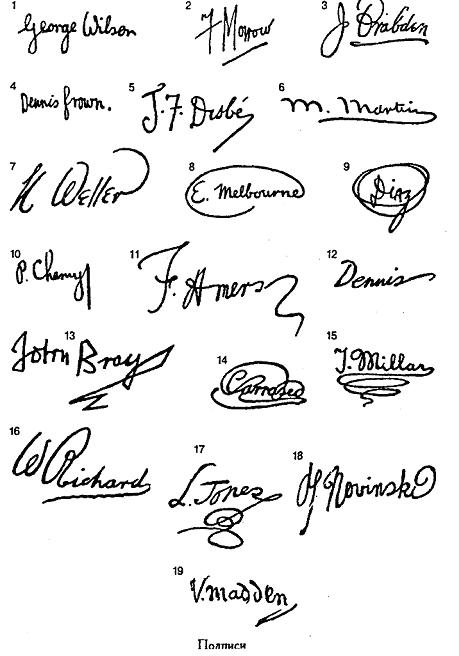 1
George Wilson
2
F Morrow
3
J Drabden
4
Dennis frown.
5
J. F. Dusbé
6
M. Martin
7
K Weller
8
E. Melbourne
9
Diaz
10
P. Chamy
11
F. Amers
12
Dennis
13
John Bray
14
Carrasco
15
T. Millar
16
W Richards
17
L. Jones
18
H. Novinski
19
V. madden
Подписи